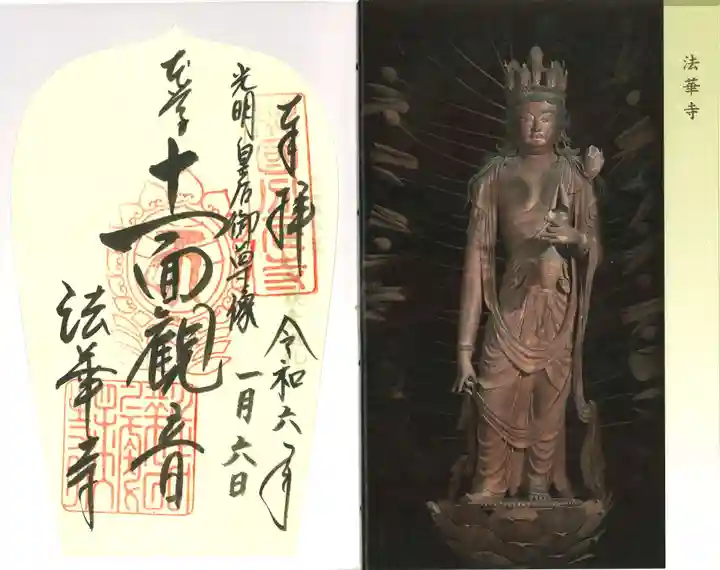 奉拝
令和六年
一月六日
光明皇后御尊像
本尊
十一面觀音
法華寺
法華寺